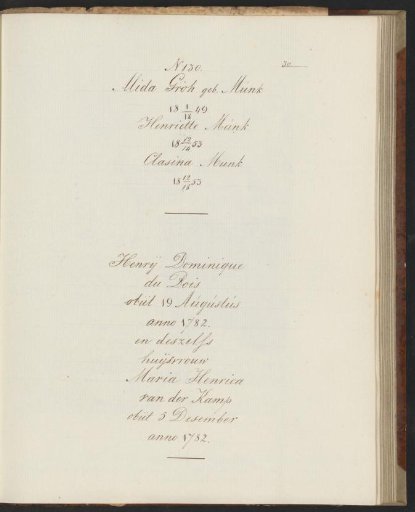 30
N 130.
Mida Gröh geb. Münk
18 1/12 49
Henriette Münk
18 12/14 53
Clasina Munk
18 12/18 53
Henrÿ Dominique
du Bois
obiit 19 Augustus
anno 1782.
en deszelfs
huÿsvrouw
Maria Henrica
van der Kamp
obiit 5 Desember
anno 1782.